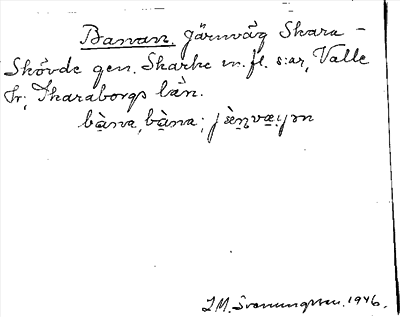 Banan, järnväg Skara -
Skövde gen. Skarke m. fl. s:ar, Valle
hr; Skaraborgs län.
bàna, bàna; jèṉvæyən
I.M. Svenungsson. 1946.